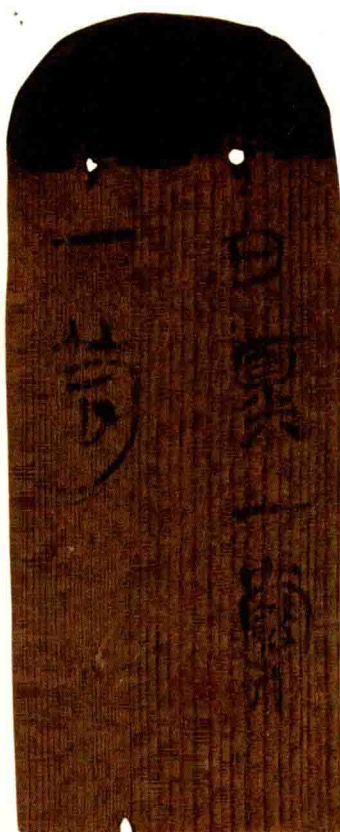 白粟一囊
一笥